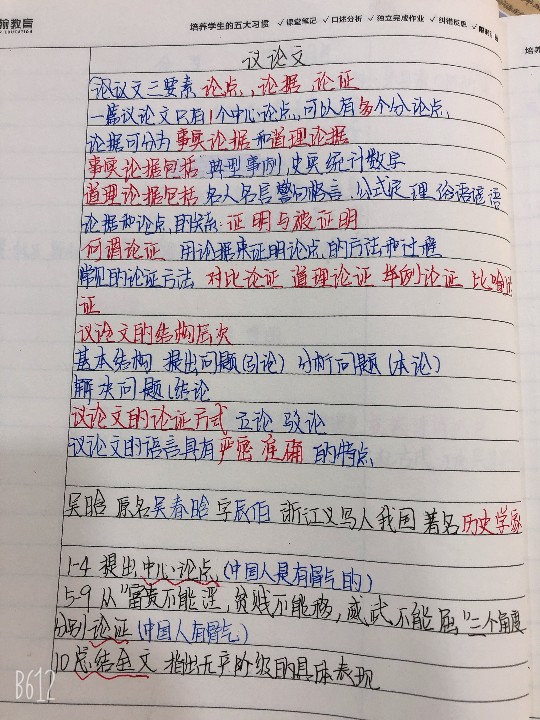 翰教育
培养学生的五大习惯 ✓课堂笔记 ✓口述分析 ✓独立完成作业 ✓纠错反思
议论文
议论文三要素 论点, 论据 论证
一篇议论文只有1个中心论点,可以有多个分论点,
论据可分为事实论据和道理论据
事实论据包括 典型事例,史实统计数字
道理论据包括 名人名言警句格言,公式定理俗语谚语
论据和论点的关系:证明与被证明
何谓论证 用论据来证明论点的方法和过程
常见的论证方法 对比论证 道理论证 举例论证 比喻论
证
议论文的结构层次
基本结构 提出问题(引论) 分析问题(本论)
解决问题(结论
议论文的论证方式 立论 驳论
议论文的语言具有严密准确的特点
吴晗 原名吴春晗 字辰伯 浙江义乌人我国著名历史学家
1-4 提出中心论点(中国人是有骨气的)
5-9 从"富贵不能淫,贫贱不能移,威武不能屈"三个角度
分别论证(中国人有骨气)
10 总结全文 指出无产阶级的具体表现
B612